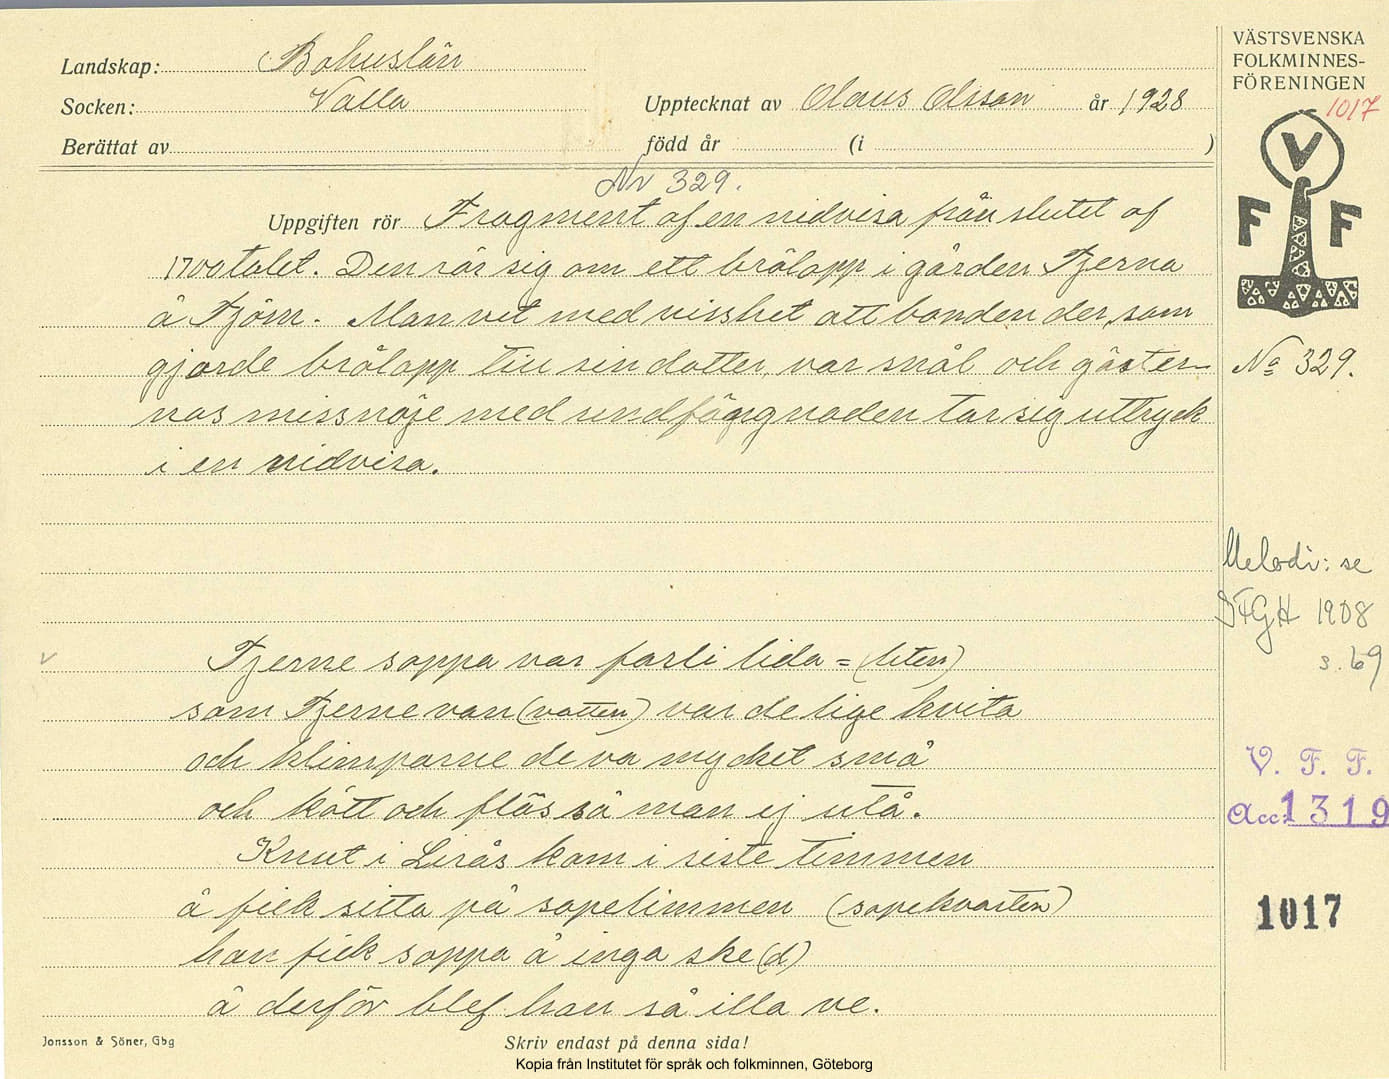 Landskap: Bohuslän
Socken: Valla
Upptecknat av Olaus Olsson år 1928
Berättat av
född år (i )
Nr 329.
Uppgiften rör Fragment af en nidvisa från slutet af
1700talet. Den rör sig om ett brölopp i gården Tjerna
å Tjörn. Man vet med visshet att bonden der, som
gjorde brölopp till sin dotter, var snål och gäster-
nas missnöje med undfägnaden tar sig uttryck
i en nidvisa.
Tjerne soppa var farli lida = (liten)
som Tjerne van (vatten) var de lige hvita
och klimparne de va mycket små
och kött och fläs så man ej utå.
Knut i Lirås kom i siste timmen
å fick sitta på sopelimmen (sopekvasten)
han fick soppa å inga ske(d)
å derför blef han så illa ve.
Jonsson & Söner, Gbg
Skriv endast på denna sida!
Kopia från Institutet för språk och folkminnen, Göteborg
VÄSTSVENSKA
FOLKMINNES-
FÖRENINGEN
1017
V
F F
No 329.
Melodi: se
GFFH 1908
s. 69
V. F. F.
Acc. 1319
1017